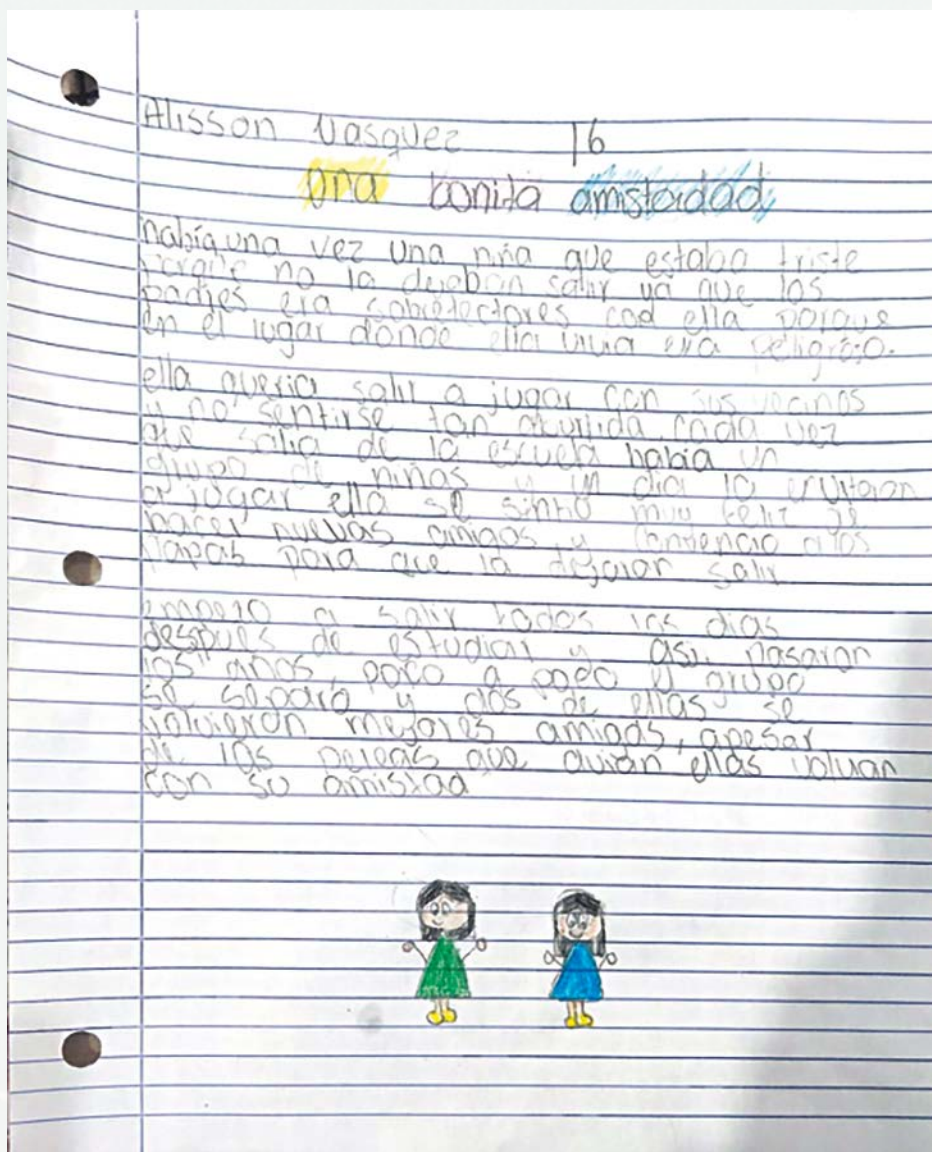 Alisson Vasquez 16
una bonita amistadad
había una vez una niña que estaba triste
porque no la dejaban salir ya que los
padres era sobretectores cod ella porque
en el lugar donde ella vivia era peligroso.
ella queria salir a jugar con sus vecinos
y no sentirse tan aburrida, cada vez
que salia de la escuela habia un
grupo de niñas y un dia la
a jugar ella se sintio muy feliz de
hacer nuevas amigas y a los
papas para que la dejaran salir
empezo a salir todos los dias
después de estudiar y asi pasaron
los años, poco a poco el grupo
se separó y dos de ellas se
volvieron mejores amigas, apesar
de las peleas que avian ellas
con su amistad